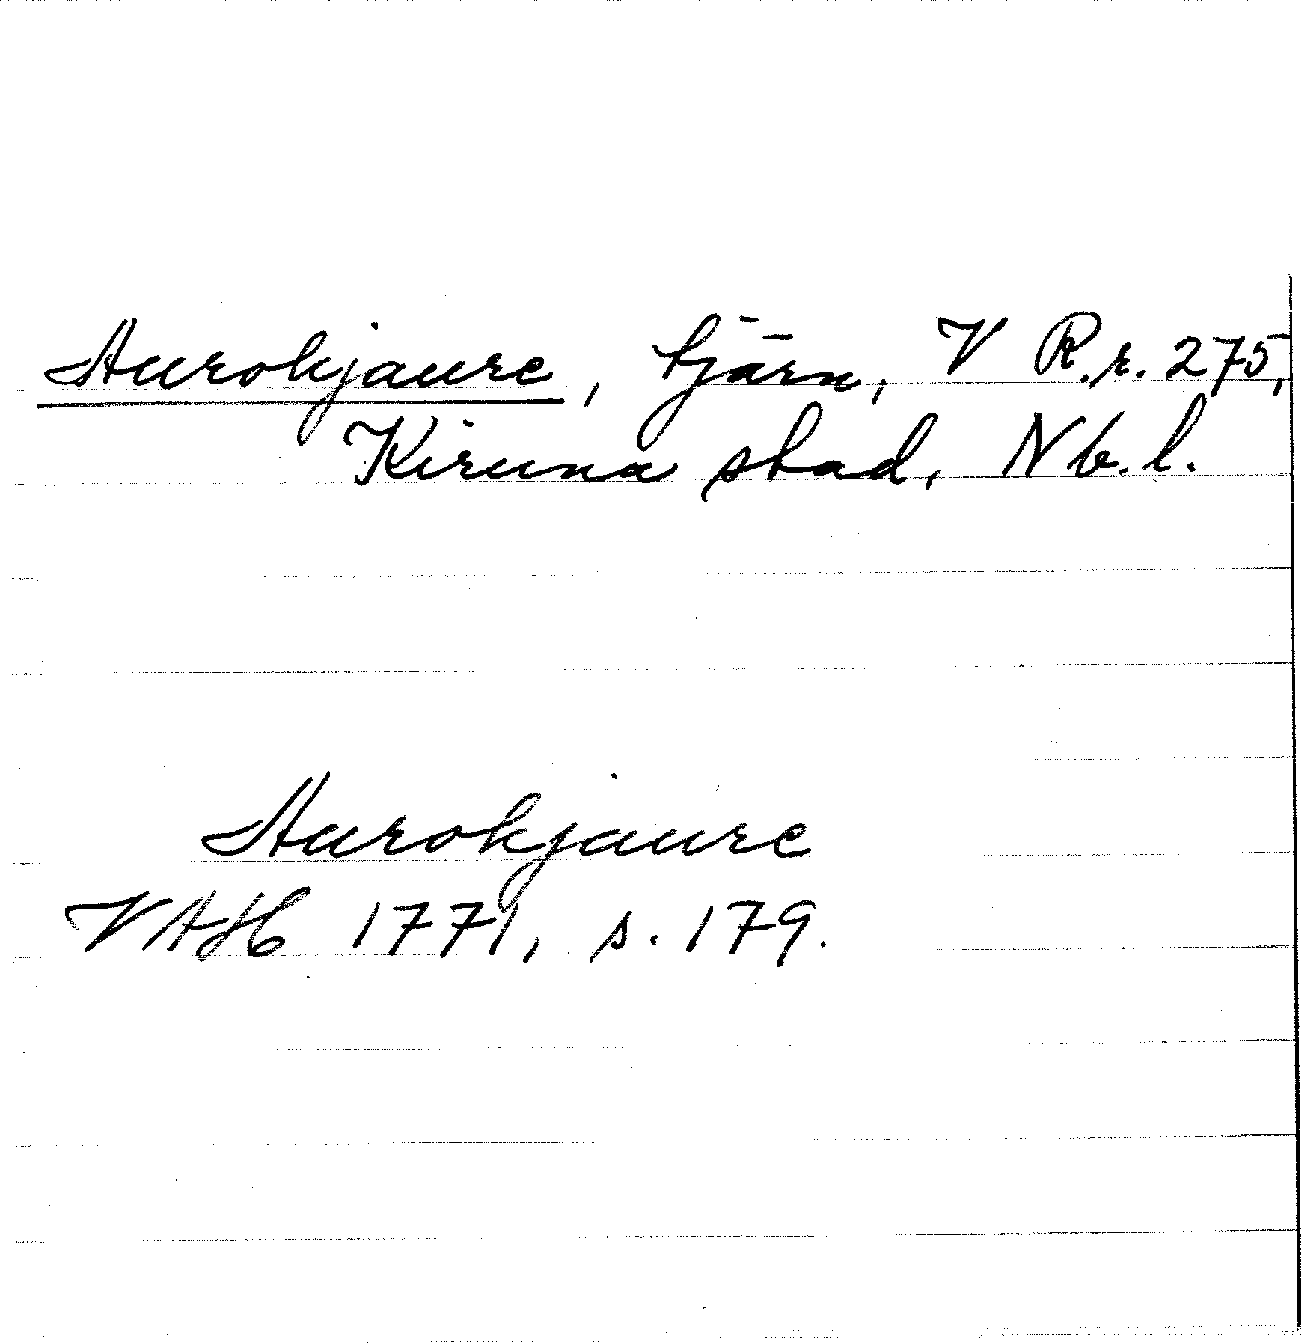 Aurokjaure, tjärn, V R.r. 275,
Kiruna stad, Nb. l.
Aurokjaure
VAH 1771, s. 179.